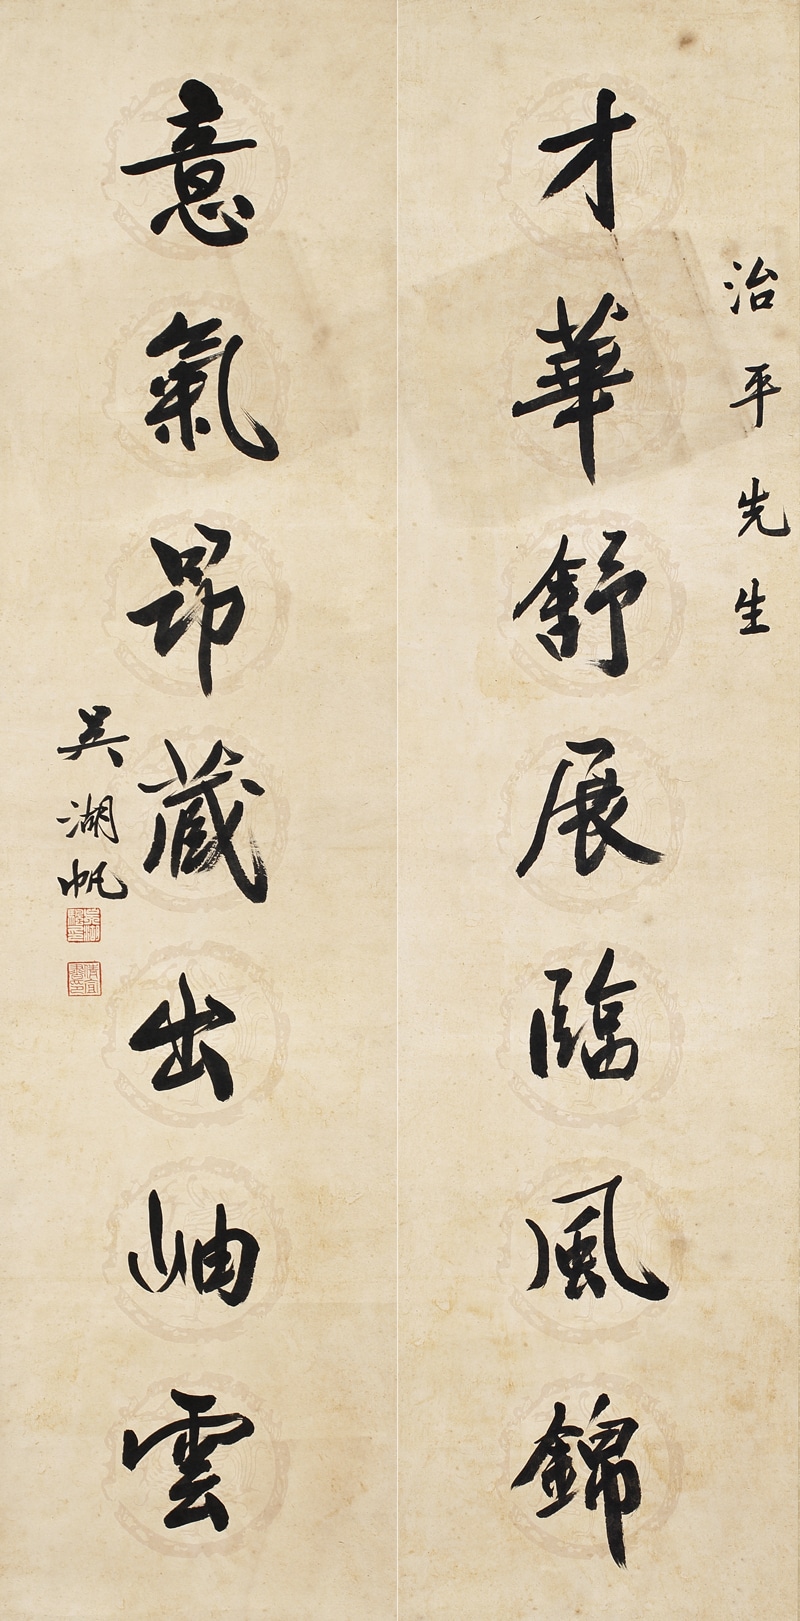 治平先生
才華舒展臨風錦
意氣昂藏出岫雲
吳湖帆